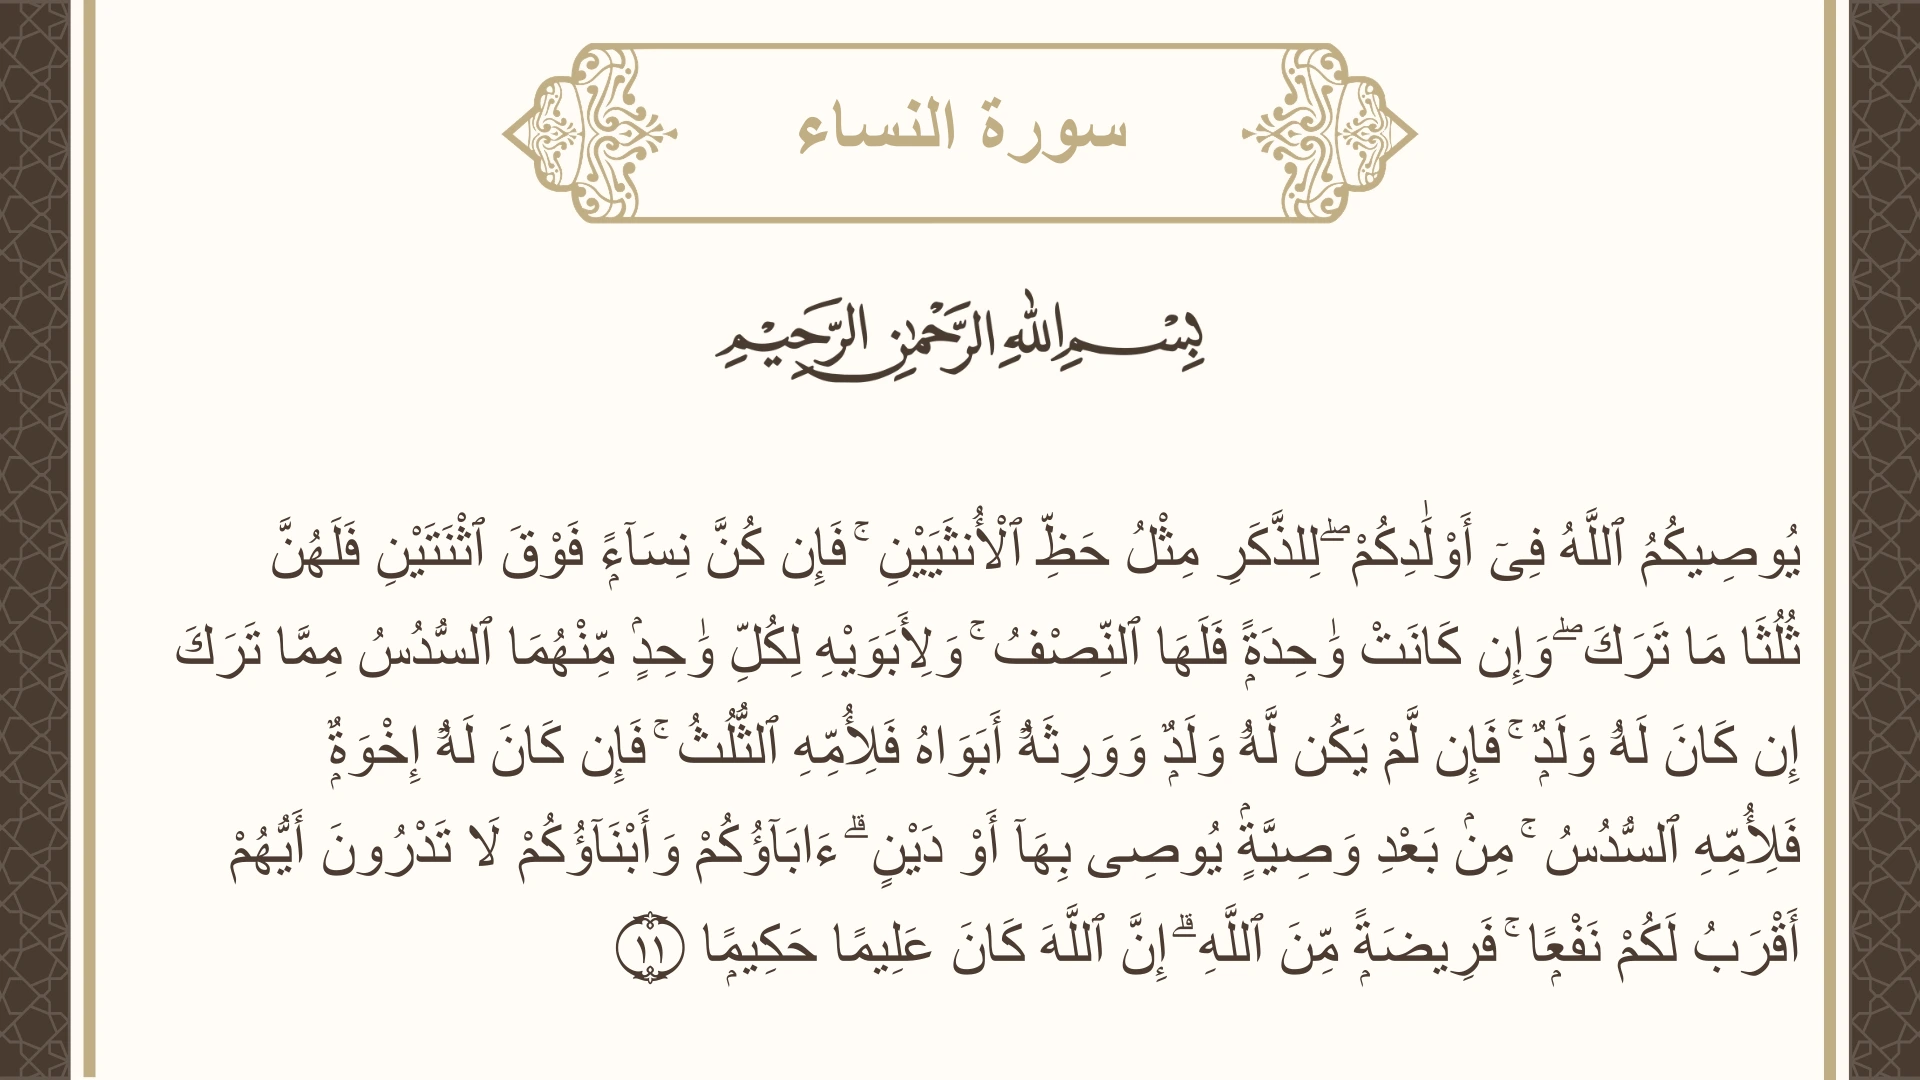 سورة النساء
بِسْمِ اللهِ الرَّحْمٰنِ الرَّحِيْمِ
يُوصِيكُمُ ٱللَّهُ فِىٓ أَوْلَٰدِكُمْ ۖ لِلذَّكَرِ مِثْلُ حَظِّ ٱلْأُنثَيَيْنِ ۚ فَإِن كُنَّ نِسَآءًۭ فَوْقَ ٱثْنَتَيْنِ فَلَهُنَّ
ثُلُثَا مَا تَرَكَ ۖ وَإِن كَانَتْ وَٰحِدَةًۭ فَلَهَا ٱلنِّصْفُ ۚ وَلِأَبَوَيْهِ لِكُلِّ وَٰحِدٍۢ مِّنْهُمَا ٱلسُّدُسُ مِمَّا تَرَكَ
إِن كَانَ لَهُۥ وَلَدٌۭ ۚ فَإِن لَّمْ يَكُن لَّهُۥ وَلَدٌۭ وَوَرِثَهُۥٓ أَبَوَاهُ فَلِأُمِّهِ ٱلثُّلُثُ ۚ فَإِن كَانَ لَهُۥٓ إِخْوَةٌۭ
فَلِأُمِّهِ ٱلسُّدُسُ ۚ مِنۢ بَعْدِ وَصِيَّةٍۢ يُوصِى بِهَآ أَوْ دَيْنٍ ۗ ءَابَآؤُكُمْ وَأَبْنَآؤُكُمْ لَا تَدْرُونَ أَيُّهُمْ
أَقْرَبُ لَكُمْ نَفْعًۭا ۚ فَرِيضَةًۭ مِّنَ ٱللَّهِ ۗ إِنَّ ٱللَّهَ كَانَ عَلِيمًا حَكِيمًۭا ١١